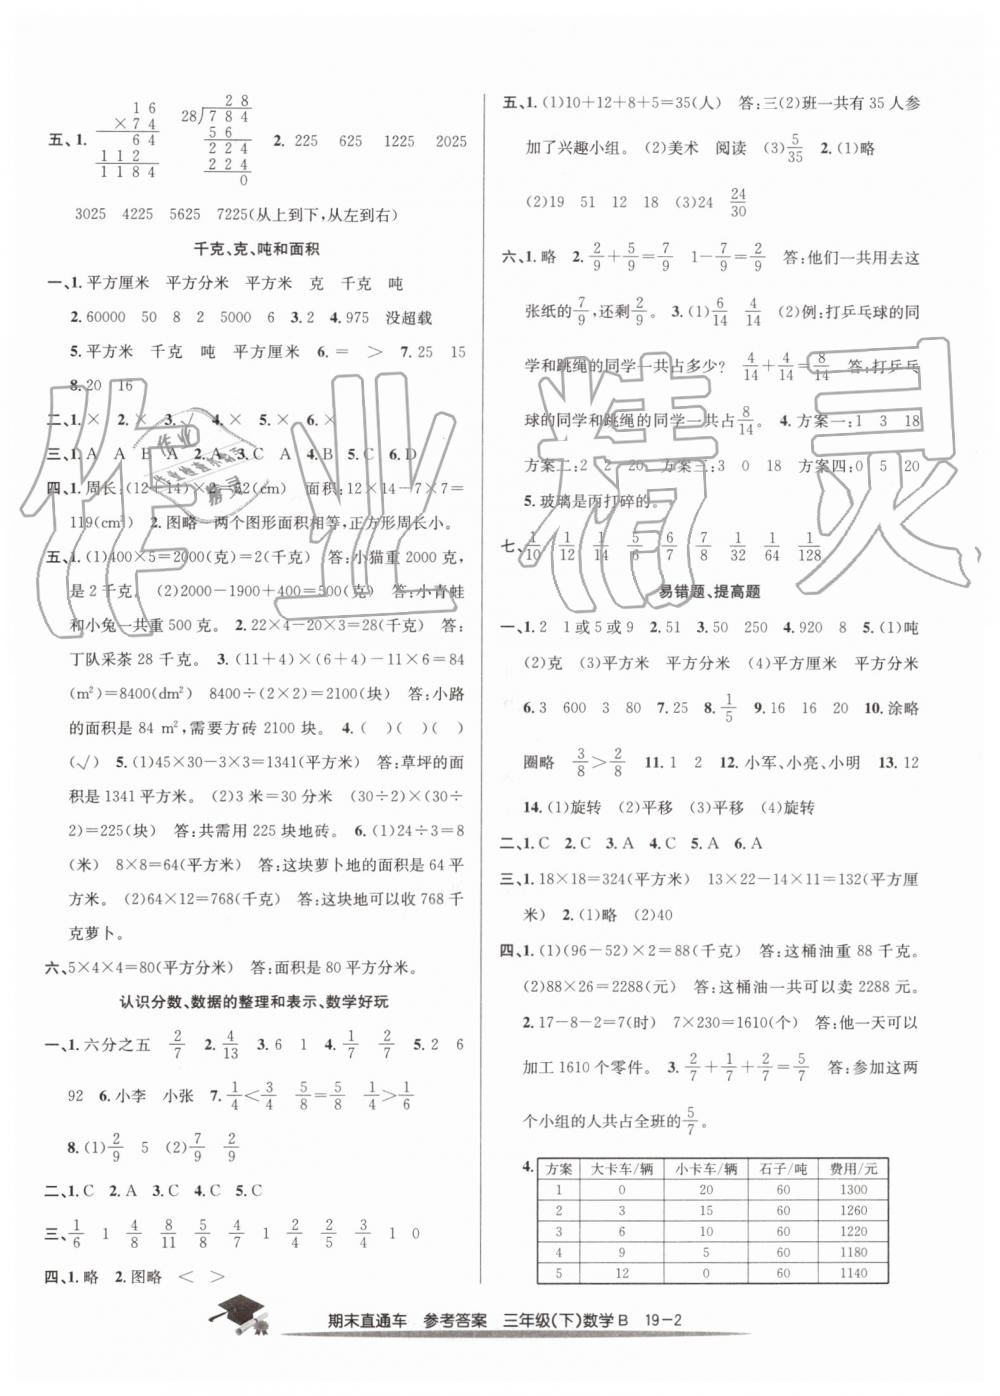 五、1.
16
×74
64
112
1184
28
28)784
56
224
224
0
2. 225 625 1225 2025
3025 4225 5625 7225(从上到下,从左到右)
千克、克、吨和面积
一、1.平方厘米 平方分米 平方米 克 千克 吨
2.60000 50 8 2 5000 6 3.2 4.975 没超载
5.平方米 千克 吨 平方厘米 6.= > 7.25 15
8.20 16
二、1.× 2.× 3. 4.× 5.× 6.×
三、1.A A B A 2.A 3.C 4.B 5.C 6.D
四、1.周长:(12+14)×2=52(cm) 面积:12×14-7×7=
119(cm²) 2.图略 两个图形面积相等,正方形周长小。
五、1.(1)400×5=2000(克)=2(千克) 答:小猫重 2000 克,
是 2 千克。 (2)2000-1900+400=500(克) 答:小青蛙
和小兔一共重 500 克。 2.22×4-20×3=28(千克) 答:
丁队采茶 28 千克。 3.(11+4)×(6+4)-11×6=84
(m²)=8400(dm²) 8400÷(2×2)=2100(块) 答:小路
的面积是 84 m²,需要方砖 2100 块。 4.( )( )( )
(√) 5.(1)45×30-3×3=1341(平方米) 答:草坪的面
积是 1341 平方米。 (2)3 米=30 分米 (30÷2)×(30÷
2)=225(块) 答:共需用 225 块地砖。 6.(1)24÷3=8
(米) 8×8=64(平方米) 答:这块萝卜地的面积是 64 平
方米。 (2)64×12=768(千克) 答:这块地可以收 768 千
克萝卜。
六、5×4×4=80(平方分米) 答:面积是 80 平方分米。
认识分数、数据的整理和表示、数学好玩
一、1.六分之五 2/7 2.4/13 3.6 1 4.1/7 2/7 5.2 6
92 6.小李 小张 7.1/4<3/4 5/8=5/8 1/4>1/6
8.(1)2/9 5 (2)7/9 2/9
二、1.C 2.A 3.C 4.C 5.C
三、1/6 1 4/8 8/11 5/8 4/7 1 2/4 2/5 3/4 1 0
四、1.略 2.图略 < >
五、1.(1)10+12+8+5=35(人) 答:三(2)班一共有 35 人参
加了兴趣小组。 (2)美术 阅读 (3)5/35 2.(1)略
(2)19 51 12 18 (3)24 24/30
六、1.略 2.2/9+5/9=7/9 1-7/9=2/9 答:他们一共用去这
张纸的7/9,还剩2/9。 3.(1)6/14 4/14 (2)例:打乒乓球的同
学和跳绳的同学一共占多少? 4/14+4/14=8/14 答:打乒乓
球的同学和跳绳的同学一共占8/14。 4.方案一:1 3 18
方案二:2 2 20 方案三:3 0 18 方案四:0 5 20
5.玻璃是丙打碎的。
七、1/10 1/12 1/14 5/6 6/7 7/8 1/32 1/64 1/128
易错题、提高题
一、1.2 1或5或9 2.51 3.50 250 4.920 8 5.(1)吨
(2)克 (3)平方米 平方分米 (4)平方厘米 平方分米
6.3 600 3 80 7.25 8.1/5 9.16 16 20 10.涂略
圈略 3/8>2/8 11.1 2 12.小军、小亮、小明 13.12
14.(1)旋转 (2)平移 (3)平移 (4)旋转
二、1.C 2.C 3.A 4.C 5.A 6.A
三、1.18×18=324(平方厘米) 13×22-14×11=132(平方厘
米) 2.(1)略 (2)40
四、1.(1)(96-52)×2=88(千克) 答:这桶油重 88 千克。
(2)88×26=2288(元) 答:这桶油一共可以卖 2288 元。
2.17-8-2=7(时) 7×230=1610(个) 答:他一天可以
加工 1610 个零件。 3.2/7+1/7+2/7=5/7 答:参加这两
个小组的人共占全班的5/7。
4. 方案 大卡车/辆 小卡车/辆 石子/吨 费用/元
1 0 20 60 1300
2 3 15 60 1260
3 6 10 60 1220
4 9 5 60 1180
5 12 0 60 1140
期末直通车 参考答案 三年级(下)数学B 19-2
作业精灵